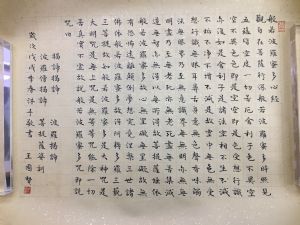 般若波羅蜜多心經
觀自在菩薩行深般若波羅蜜多時照見
五蘊皆空度一切苦厄舍利子色不異空
空不異色色即是空空即是色受想行識
亦復如是舍利子是諸法空相不生不滅
不垢不淨不增不減是故空中無色無受
想行識無眼耳鼻舌身意無色聲香味觸
法無眼界乃至無意識界無無明亦無無
明盡乃至無老死亦無老死盡無苦集滅
道無智亦無得以無所得故菩提薩埵依
般若波羅蜜多故心無罣礙無罣礙故無
有恐怖遠離顛倒夢想究竟涅槃三世諸
佛依般若波羅蜜多故得阿耨多羅三藐
三菩提故知般若波羅蜜多是大神咒是
大明咒是無上咒是無等等咒能除一切
苦真實不虛故說般若波羅蜜多咒即說
咒曰
揭諦揭諦 波羅揭諦
波羅僧揭諦 菩提薩婆訶
歲次戊戌年春 王國賢